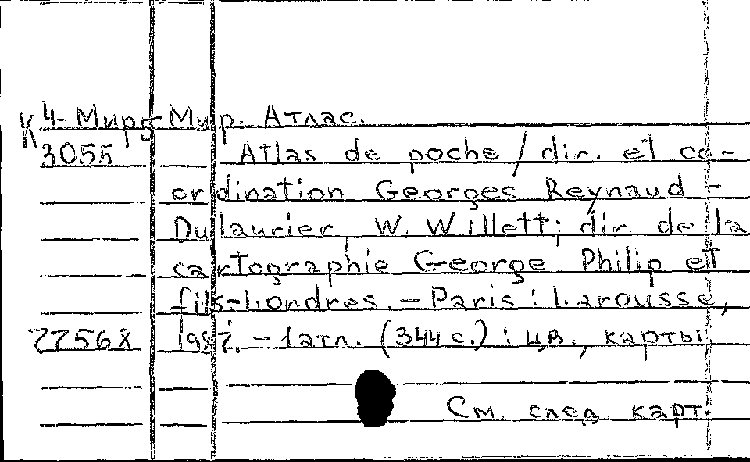 К 4-Мир5 Мир. Атлас.
3055 Atlas de poche / dir. et co-
ordination Georges Reynaud -
Dulaurier, W. Willett; dir de la
cartographie George Philip et
fils-Londres. - Paris : Larousse,
77568 1987. - 1атл. (344 с.) : цв., карты
См. след карт.